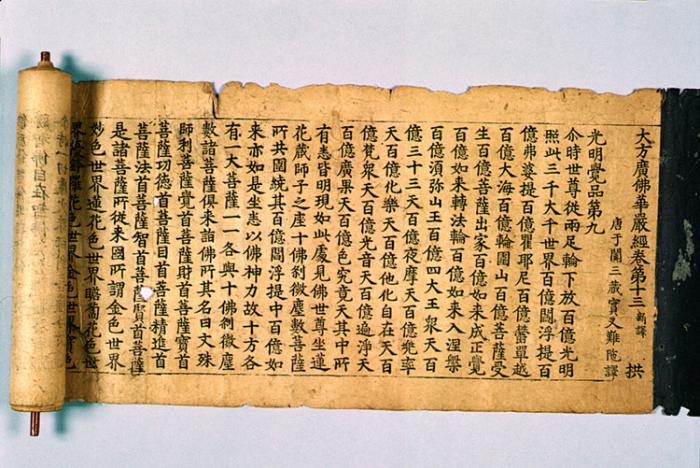 大方廣佛華嚴經卷第十三 新譯 拱
唐于闐三藏實叉難陁譯
光明覺品第九
尒時世尊從兩足輪下放百億光明
照此三千大千世界百億閻浮提百
億弗婆提百億瞿耶尼百億欝單越
百億大海百億輪圍山百億菩薩受
生百億菩薩出家百億如來成正覺
百億如來轉法輪百億如來入涅槃
百億須弥山王百億四大王衆天百
億三十三天百億夜摩天百億兜率
天百億化樂天百億他化自在天百
億梵衆天百億光音天百億遍淨天
百億廣果天百億色究竟天其中所
有悉皆明現如此處見佛世尊坐蓮
花藏師子之座十佛剎微塵數菩薩
所共圍繞其百億閻浮提中百億如
來亦如是坐悉以佛神力故十方各
有一大菩薩一一各與十佛剎微塵
數諸菩薩俱來詣佛所其名曰文殊
師利菩薩覺首菩薩財首菩薩寶首
菩薩功德首菩薩目首菩薩精進首
菩薩法首菩薩智首菩薩賢首菩薩
是諸菩薩所從來國所謂金色世界
妙色世界蓮花色世界瞻蔔花色世
界優鉢羅花色世界金色世界寶色